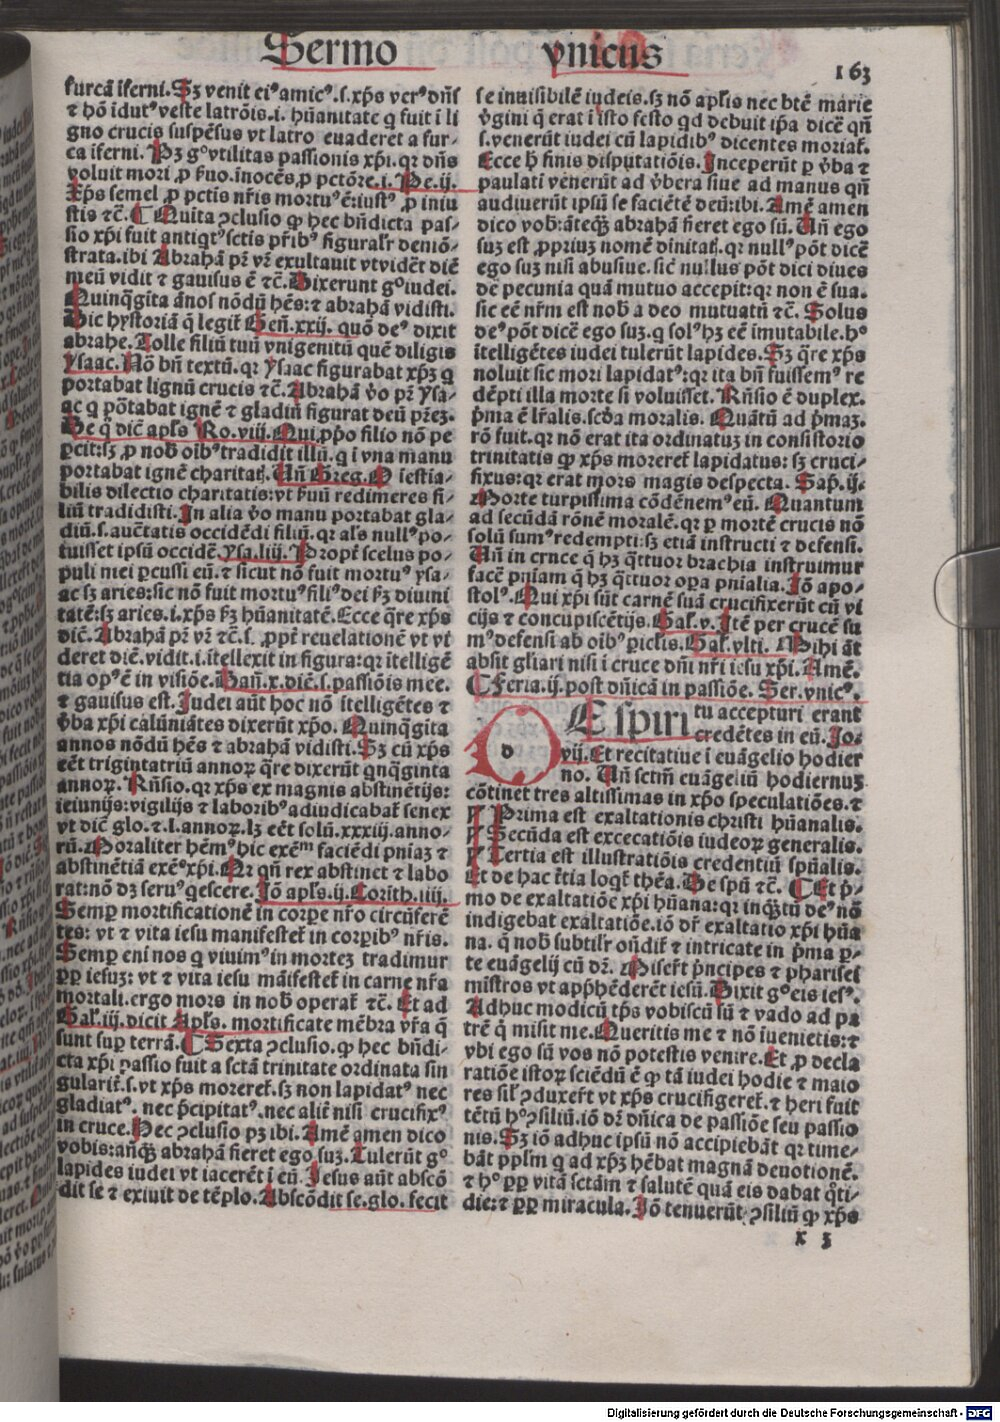 Sermo vnicus
163
furcā iferni. Sz venit eiꝰ amicꝰ .s. xp̄s verꝰ dn̄s
⁊ hō īdutꝰ veste latrōis .i. hūanitate q fuit ī li
gno crucis suspēsus vt latro euaderet a fur-
ca iferni. Pz gͦ vtilitas passionis xp̄i. qr dn̄s
voluit mori ꝓ ẜuo. inocēs, ꝓ pctōre .i. Pe. ij.
Xp̄s semel ꝓ pctis nr̄is mortuꝰ ē: iustꝰ ꝓ iniu
stis ⁊c̄. ¶ Quita ↄclusio ꝙ hec bn̄dicta pas-
sio xp̄i fuit antiqtꝰ sctis pr̄ibꝰ figuralr̄ demō-
strata. ibi Abrahā pr̄ vr̄ exultauit vt videt̄ diē
meū vidit ⁊ gauisus ē ⁊c̄. Dixerunt gͦ iudei.
Quinq̄gita ānos nōdū hēs: ⁊ abrahā vidisti.
Hic hystoriā q̄ legit̄ Gen̄. xxij. quō deꝰ dixit
abrahe. Tolle filiū tuū vnigenitū quē diligis
ysaac. Nō bn̄ textū. qr ysaac figurabat xp̄z q
portabat lignū crucis ⁊c̄. Abrahā v̄o pr̄ ysa-
ac q pōtabat ignē ⁊ gladiū figurat deū pr̄ez.
De q̄ dic̄ apl̄s Ro. viij. Qui ꝓpͦo filio nō pe
ꝑcit: sz ꝓ nob̄ oībꝰ tradidit illū. q ī vna manu
portabat ignē charitat̄. Un̄ Greg. O īestia-
bilis dilectio charitatis: vt ẜuū redimeres fi-
liū tradidisti. In alia v̄o manu portabat gla-
diū .s. auc̄tatis occidēdi filiū. qr al̄s nullꝰ po-
tuisset ipsū occidē. ysa. liij. Propt̄ scelus po-
puli mei ꝑcussi eū. ⁊ sicut nō fuit mortuꝰ ysa-
ac sz aries: sic nō fuit mortuꝰ filiꝰ dei ẜz diuini
tatē: sz aries .i. xp̄s ẜz hūanitatē. Ecce q̄re xp̄s
dic̄. Abrahā pr̄ vr̄ ⁊c̄ .s. ꝓpt̄ reuelationē vt vi
deret diē. vidit .i. ītellexit in figura: qr ītelligē
tia opꝰ ē in visiōe. Dan̄. x. diē .s. passiōis mee.
⁊ gauisus est. Judei aūt hoc nō ītelligētes ⁊
v̄ba xp̄i calūniātes dixerūt xp̄o. Quinq̄gita
annos nōdū hēs ⁊ abrahā vidisti. Sz cū xp̄s
eēt trigintatriū annoꝝ q̄re dixerūt qnq̄ginta
annoꝝ. Rn̄sio. qr xp̄s ex magnis abstinētijs:
ieiunijs: vigilijs ⁊ laboribꝰ adiudicabat̄ senex
vt dic̄ glo. ⁊ .l. annoꝝ. lz eēt solū. xxxiij. anno-
rū. Moraliter hēmꝰ hic exēᵐ faciēdi pniaz ⁊
abstinētiā exē ͦ xp̄i. Qr qn̄ rex abstinet ⁊ labo
rat: nō dz seruꝰ qescere. Jō apl̄s. ij. Corith. iiij.
Semꝑ mortificationē in corꝑe nr̄o circūferē
tes: vt ⁊ vita iesu manifestet̄ in corꝑibꝰ nr̄is.
Semꝑ eni nos q viuimꝰ in mortez tradimur
ꝓpt̄ iesuz: vt ⁊ vita iesu māifestet̄ in carne nr̄a
mortali. ergo mors in nob̄ operat̄ ⁊c̄. Et ad
Gal̄. iij. dicit Apl̄s. mortificate mēbra vr̄a q̄
sunt suꝑ terrā. ¶ Sexta ↄclusio. ꝙ hec bn̄di-
cta xp̄i passio fuit a sctā trinitate ordinata sin
gularit̄ .s. vt xp̄s moreret̄. sz non lapidatꝰ nec
gladiatꝰ. nec p̄cipitatꝰ. nec alit̄ nisi crucifixꝰ
in cruce. Hec ↄclusio pz ibi. Amē amen dico
vobis: anq̄z abrahā fieret ego suz. Tulerūt gͦ
lapides iudei vt iacerēt ī eū. Jesus aūt abscō
dit se ⁊ exiuit de tēplo. Abscōdit se. glo. fecit
se inuisibilē iudeis. sz nō apl̄is nec btē marie
v̄gini q̄ erat ī isto festo qd debuit ip̄a dicē qn̄
.s. venerūt iudei cū lapidibꝰ dicentes moriat̄.
Ecce h̄ finis disputatiōis. Inceperūt ꝑ v̄ba ⁊
paulati venerūt ad v̄bera siue ad manus qn̄
audiuerūt ipsū se faciētē deū: ibi. Amē amen
dico vob̄: āteqz abrahā fieret ego sū. Un̄ ego
suz est ꝓprius nomē dinitat̄. qr nullꝰ pōt dicē
ego suz nisi abusiue. sic̄ nullus pōt dici diues
de pecunia quā mutuo accepit: qr non ē sua.
sic eē nr̄m est nob̄ a deo mutuatū ⁊c̄. Solus
deꝰ pōt dicē ego suz. q solꝰ hz eē īmutabile. hͦ
ītelligētes iudei tulerūt lapides. Sz q̄re xp̄s
noluit sic mori lapidatꝰ: qr ita bn̄ fuissemꝰ re
dēpti illa morte si voluisset. Rn̄sio ē duplex.
p̄ma ē lr̄alis. scd̄a moralis. Quātū ad p̄maz.
rō fuit. qr nō erat ita ordinatuz in consistorio
trinitatis ꝙ xp̄s moreret̄ lapidatus: sz cruci-
fixus: qr erat mors magis despecta. Sap̄. ij.
Morte turpissima cōdēnemꝰ eū. Quantum
ad secūdā rōnē moralē. qr ꝑ mortē crucis nō
solū sumꝰ redempti: sz etiā instructi ⁊ defensi.
Un̄ in cruce q̄ hz q̄ttuor brachia instruimur
facē pniam q̄ hz q̄ttuor oꝑa pnialia. Jō apo-
stolꝰ. Qui xp̄i sūt carnē suā crucifixerūt cū vi
cijs ⁊ concupiscētijs. Gal̄. v. Itē per crucē su
mꝰ defensi ab oibꝰ ꝑiclis. Gal̄. vlti. Mihi āt
absit gl̄iari nisi ī cruce dn̄i nr̄i iesu xp̄i. Amē.
¶ Feria. ij. post dn̄icā in passiōe. Ser. vnicꝰ.
DE spiri tu accepturi erant
credētes in eū. Jo.
vij. Et recitatiue ī euāgelio hodier
no. Un̄ sctm̄ euāgeliū hodiernuz
cōtinet tres altissimas in xp̄o speculatiōes. ⁊
¶ Prima est exaltationis christi hūanalis.
¶ Secūda est excecatiōis iudeoꝝ generalis.
¶ Tertia est illustratiōis credentiū spūalis.
Et de hac t̄tia loqt̄ thēa. De spū ⁊c̄. ¶ Et p̄-
mo de exaltatiōe xp̄i hūana: qr inq̄tū deꝰ nō
indigebat exaltatiōe. iō dr̄ exaltatio xp̄i hūa
na. q̄ nob̄ subtilr̄ oūdit̄ ⁊ intricate in p̄ma ꝑ-
te euāgelij cū dr̄. Miser̄t p̄ncipes ⁊ pharisei
mīstros vt app̄hēderēt iesū. Dixit gͦ eis iesꝰ.
Adhuc modicū tp̄s vobiscū sū ⁊ vado ad pa
trē q̄ misit me. Queritis me ⁊ nō īuenietis: ⁊
vbi ego sū vos nō potestis venire. Et ꝓ decla
ratiōe istoꝝ sciēdū ē ꝙ tā iudei hodie ⁊ maio
res sil̄ ↄduxer̄t vt xp̄s crucifigeret̄. ⁊ heri fuit
tētū hͦ ↄsiliū. iō dr̄ dn̄ica de passiōe seu passio
nis. Sz iō adhuc ipsū nō accipiebāt qr time-
bāt ppl̄m q ad xp̄z hēbat magnā deuotionē.
⁊ hͦ ꝓpt̄ vitā sctām ⁊ salutē quā eis dabat q̄ti-
die: ⁊ ꝓpt̄ miracula. Jō tenuerūt ↄsiliū ꝙ xp̄s
x 3
Digitalisierung gefördert durch die Deutsche Forschungsgemeinschaft - DFG